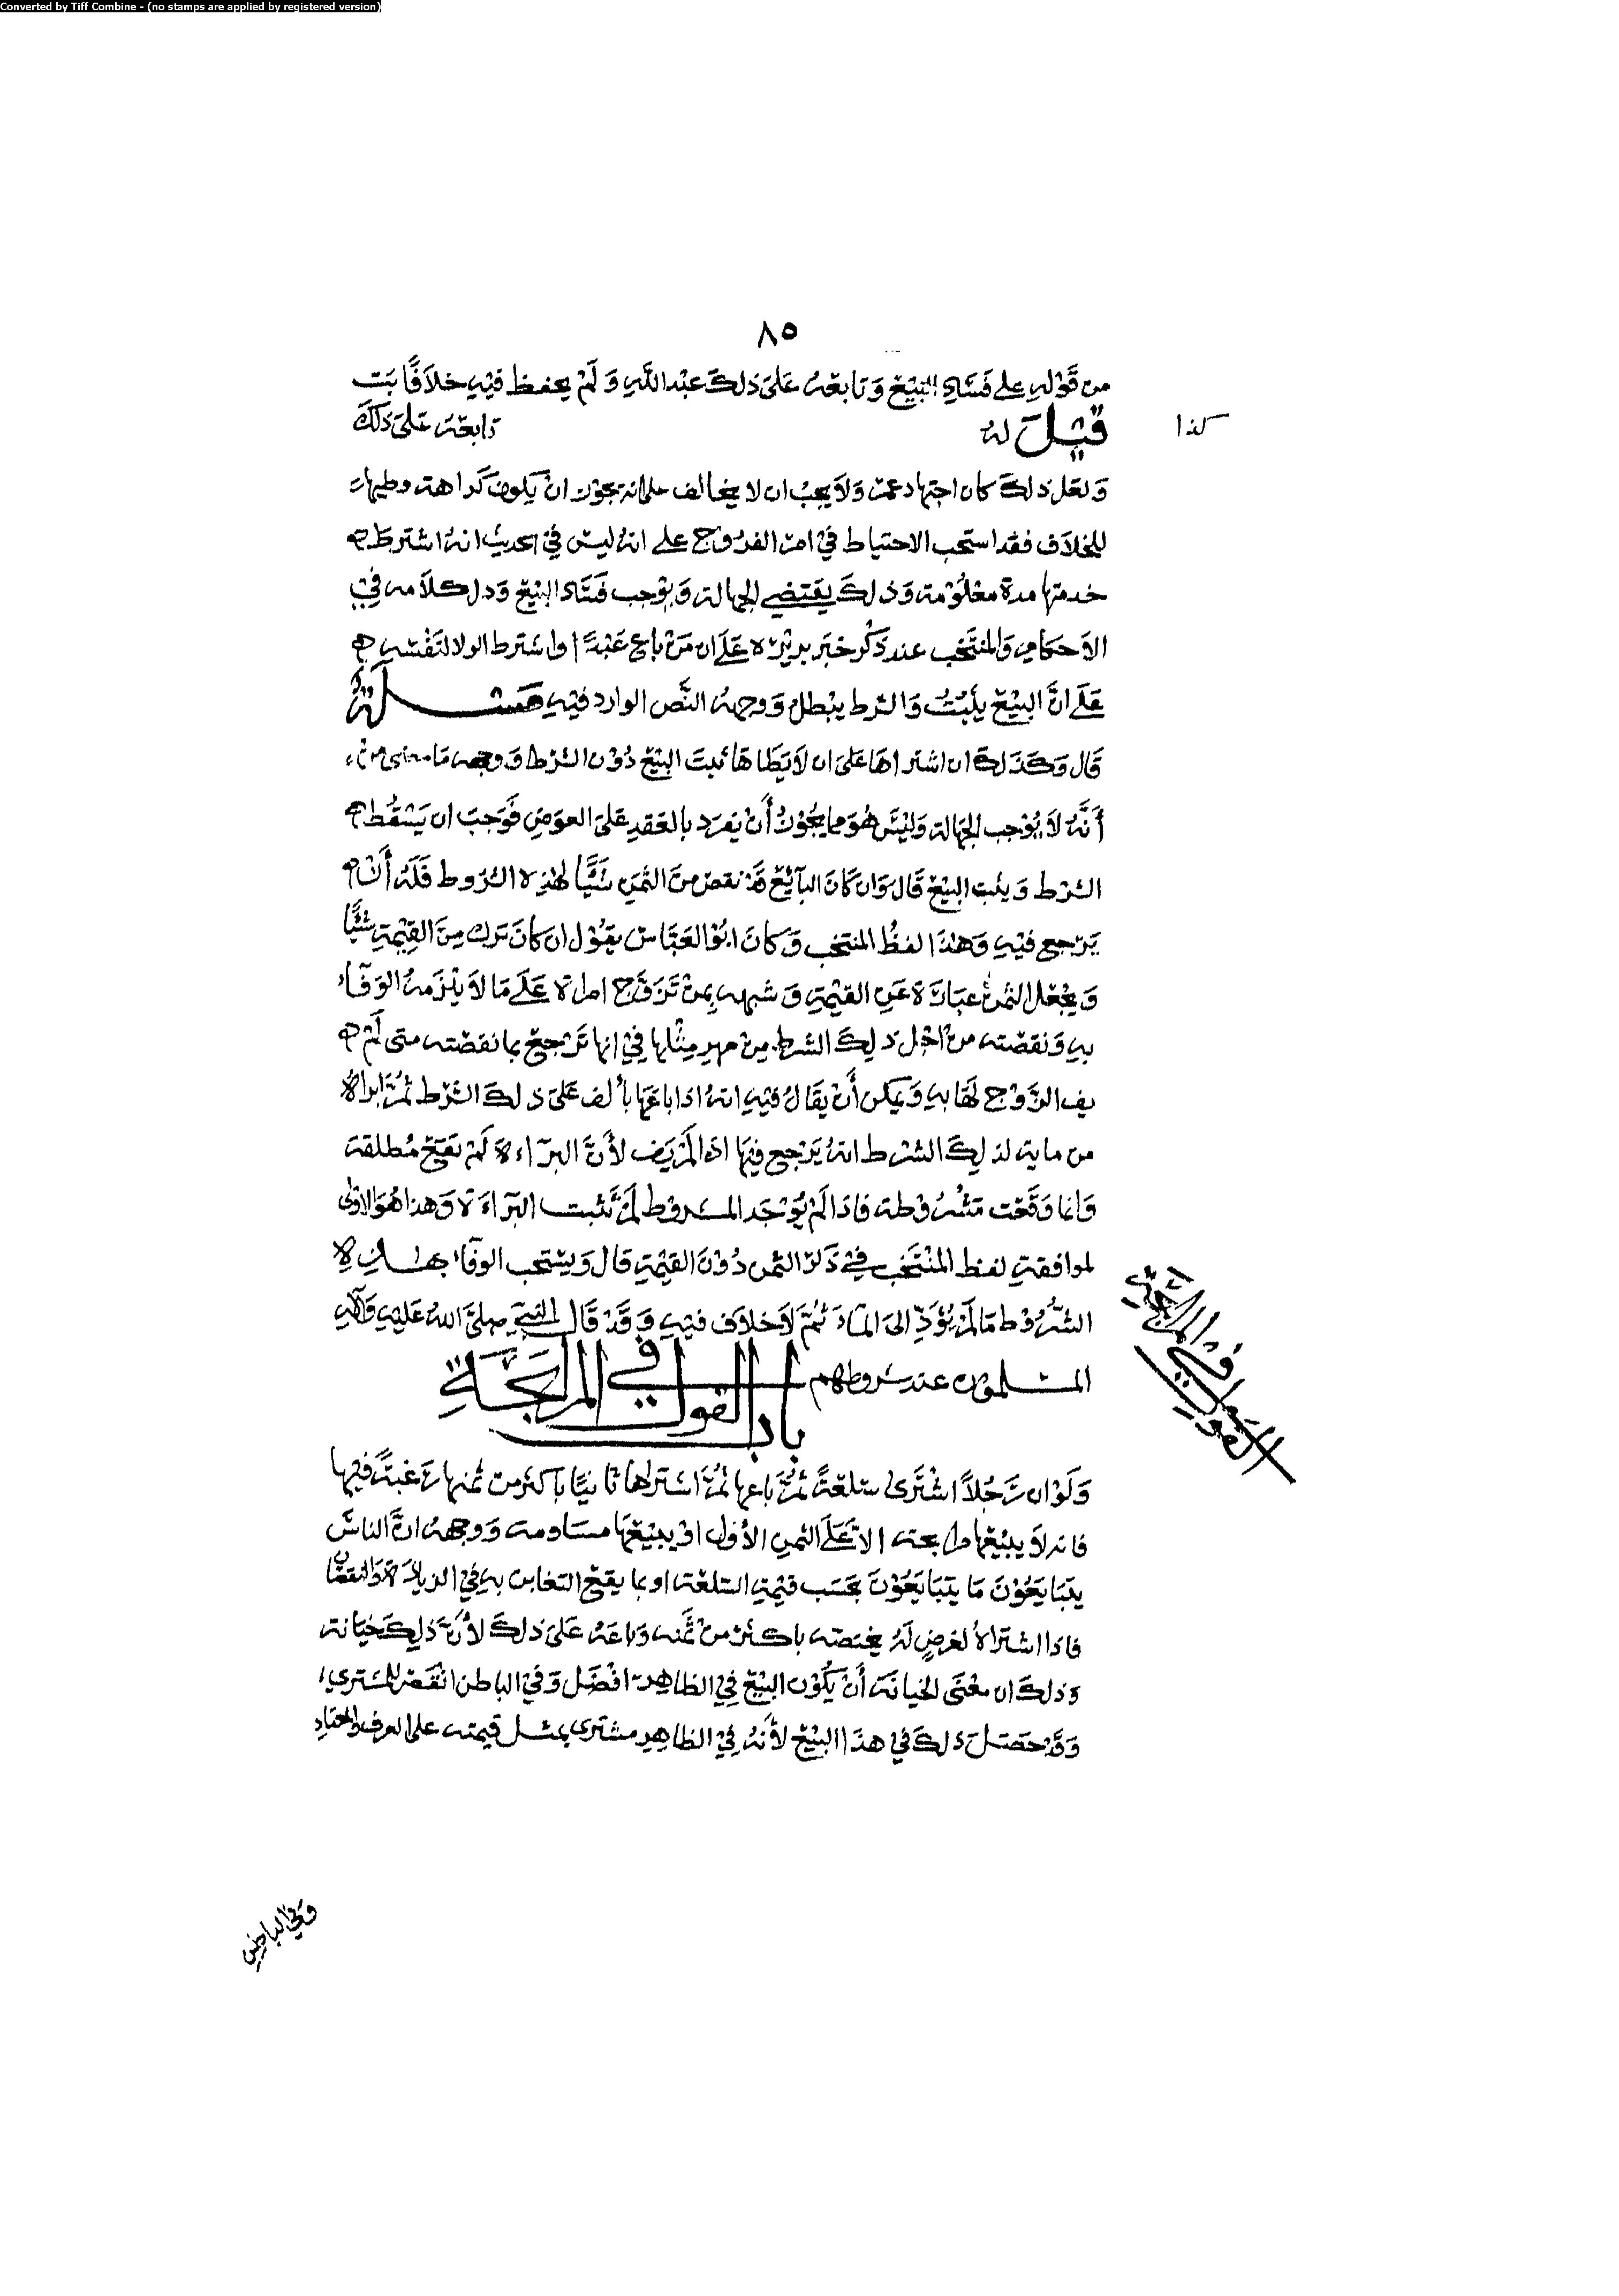 Converted by Tiff Combine - (no stamps are applied by registered version)
٨٥
من قَوْلهِ على فَسَادِ البَيْعِ وَتابعَهُ عَلىَ ذلكَ عبْد اللَّهِ وَلَمْ يحفظ فيْهِ خلاَفًا بَتَ
كذا
قيْلَ لهُ تابعَهُ عَلىَ ذلكَ
وَلعَل ذلكَ كان اجتهاد عمر وَلاَ يجبُ ان لا يخالف على انه يجوْز انْ يكوْن كراهته وطيها
للخلاَف فقد استحب الاحتياط فيْ امر الفرُوْج على انهُ ليسَ فيْ الحديث انهُ اشترط
خدمتها مدة معْلوُمة وَذلكَ يقتضيْ الجهالة وَيوْجب فَسَاد البيْع وَدل كلاَمه فيْ
الاَحكام وَالمنتَخب عند ذكْر خبَر بريْرَة عَلَى ان مَنْ باع عَبْدًا واشترط الولا لنَفْسه
عَلَى انَّ البيْعَ يثبُتُ وَالشرط يبْطل وَوجههُ النَّص الوارد فيْهِ مسئلة
قَال وَكَذلكَ ان اشتراهَا عَلىَ ان لاَ يَطَاهَا ثبتَ البيْعُ دُوْن الشرْط وَوجهه مَا مضى من
أنَّهُ لاَ يُوْجب الجهالة وَليْسَ هُوَ مما يجُوْزُ أنْ يفرَد بالعَقدِ عَلىَ العوَضِ فَوَجبَ ان يَسْقُط
الشرْط وَيثبت البيْعُ قَالَ وَان كَانَ البآئعُ قَدْ نقصَ منَ الثمَنِ شَيْئًا لهٰذه الشرُوط فَلَهُ أنْ
يَرْجع فيْهِ وَهٰذَا لفظُ المنتخب وَكانَ ابُوْ العَبَّاسِ يقُوْل ان كانَ ترك منَ القِيْمةِ شَيْئًا
وَيجْعَل الثمن عبَارَة عَنِ القيْمةِ وَشبهه بمنْ تَزَوَّجَ امراة عَلَى مَا لاَ يلْزَمهُ الوَفَآءُ
بهِ وَنقصَته منْ اجْل ذلكَ الشرط منْ مهرِ مثْلها فيْ انها تَرْجعُ بما نقصَته متى لَمْ
يف الزَّوْج لهَا بهِ وَيمكن أنْ يقَالَ فيْهِ انهُ اذا باعَهَا بألف عَلىَ ذلكَ الشرْط ثُمَّ ابراهُ
من ماية لذلكَ الشرط انهُ يَرْجع فيهَا اذ المْ يَف لأنَّ البرَآءة لَمْ تقعْ مُطلقة
وَانما وَقَعَت مَشْرُوْطة فاذا لَمْ يُوْجَد المشروْط لمْ تَثبت البَرآءَة وَهذا هُوَ الاوْلى
لموافقتهِ لفظ المنْتخَب فيْ ذكر الثمن دُوْنَ القيْمةِ قال وَيسْتحب الوفَآء بهذِهِ
الشُّرُوْط مَا لَمْ يُؤدِّ الىَ المآء ثُمَّ لاَ خلاَف فيْهِ وَقَدْ قَالَ النبيِّ صلىَّ اللهُ عَليْهِ وَآلهِ
المسلموْن عند شروطهم باب القول في المرابحَةِ
القول في المرابحة
وَلَوْ ان رَجُلاً اشْتَرَى سلعَةً ثُمَّ باعها ثُمَّ اشترَاهَا ثانيًا بآكثر من ثمنها رَغبَةً فيْها
فانه لاَ يبيْعَها مرابحته الاَّ عَلَى الثمنِ الأوَّل اوْ يبيْعَهَا مساومة وَوجههُ انَّ الناسَ
يتبَايعُوْنَ مَا يتبَايَعُوْنَ بحسَب قيْمة السّلعَة او بما يقعُ التغابن بهِ فيْ الزيادَة وَالنقصَان
فاذا اشترَاهُ لغرضٍ لَهُ يختصّه باكثرَ منْ ثمنه وَباعَهُ عَلىَ ذلكَ لأنَّ ذلكَ خيَانة
وَذلكَ ان معْنَى الخيانَة أنْ يَكُوْن البيْعُ فيْ الظاهر افْضَل وَفيْ الباطن انقَصَ للمشتري
وَقَدْ حَصَلَ ذلكَ فيْ هذا البيْعِ لأنَّهُ فيْ الظاهِر مشترى بمثل قيمته على العرف المعتاد
وَفي الباطِنِ